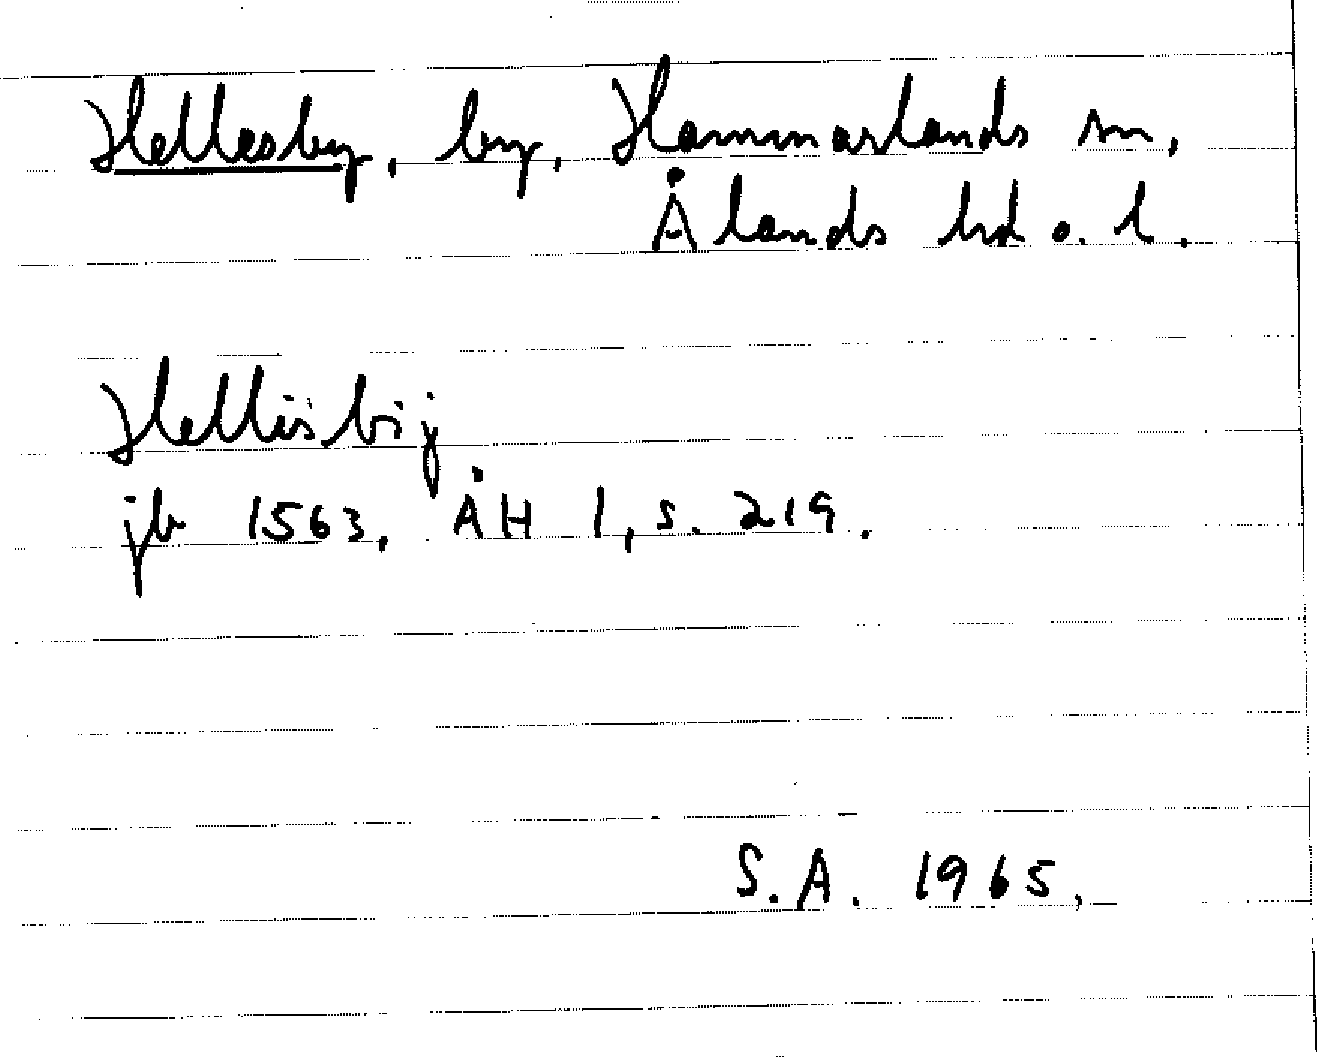 Hellesby, by, Hammarlands sn,
Ålands hd o. l.
Hellisbij
jb 1563. ÅH 1, s. 219.
S.A. 1965.